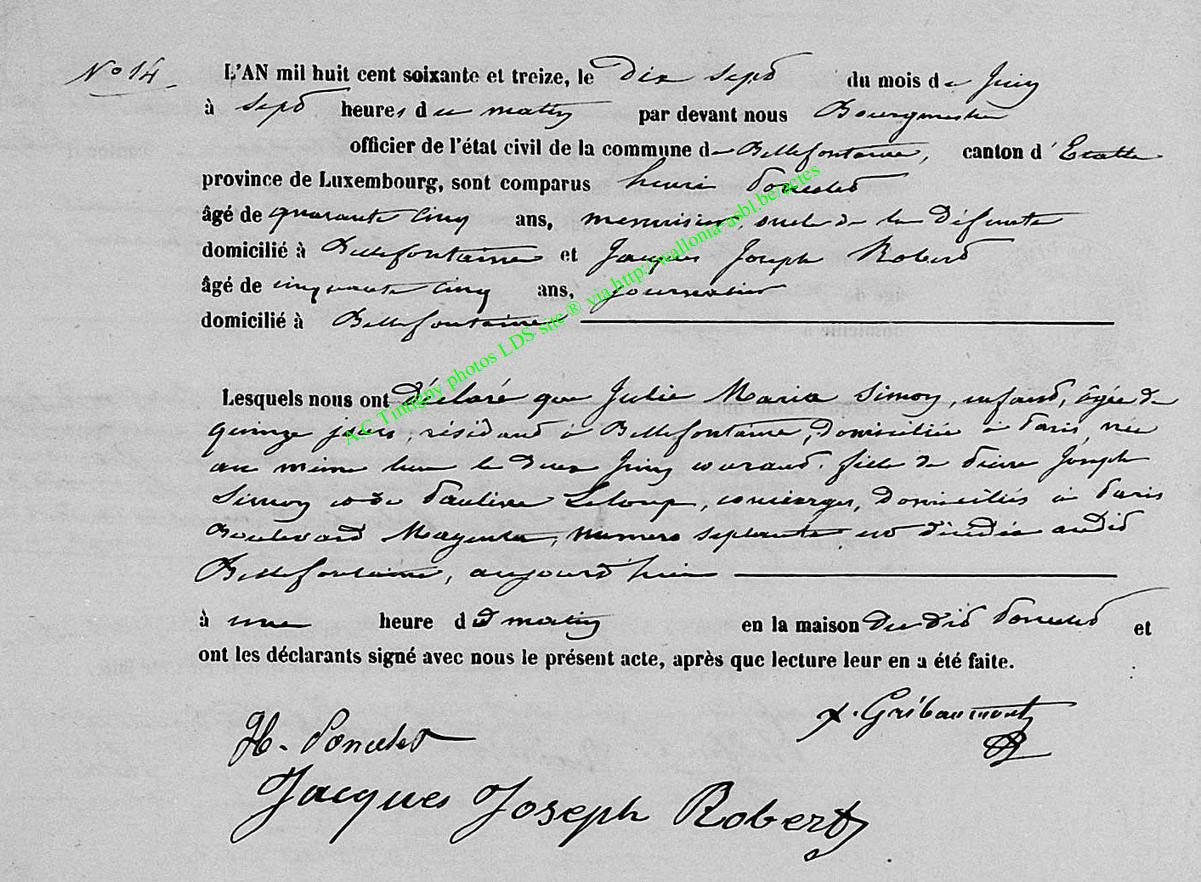 N° 14 L'AN mil huit cent soixante et treize, le dix sept du mois de Juin
à sept heures du matin par devant nous Bourgmestre
officier de l'état civil de la commune de Bellefontaine, canton d'Etalle
province de Luxembourg, sont comparus henri Poncelet
âgé de quarante cinq ans, menuisier, oncle de la défunte
domicilié à Bellefontaine et Jacques Joseph Robert
âgé de cinquante cinq ans, journalier
domicilié à Bellefontaine
Lesquels nous ont déclaré que Julie Maria Simon, enfant, âgée de
quinze jours, résidant à Bellefontaine, domiciliée à Paris, née
au même lieu le deux Juin courant, fille de Pierre Joseph
Simon et de Pauline Leloup, concierges, domiciliés à Paris
Boulevard Magenta, numero septante est décédée audit
Bellefontaine, aujourd'hui
à une heure d du matin en la maison du dit Poncelet et
ont les déclarants signé avec nous le présent acte, après que lecture leur en a été faite.
H. Poncelet
Gribaumont
Jacques Joseph Robert
A.C Tintigny photos LDS site ® via http://wallonia-asbl.be/actes